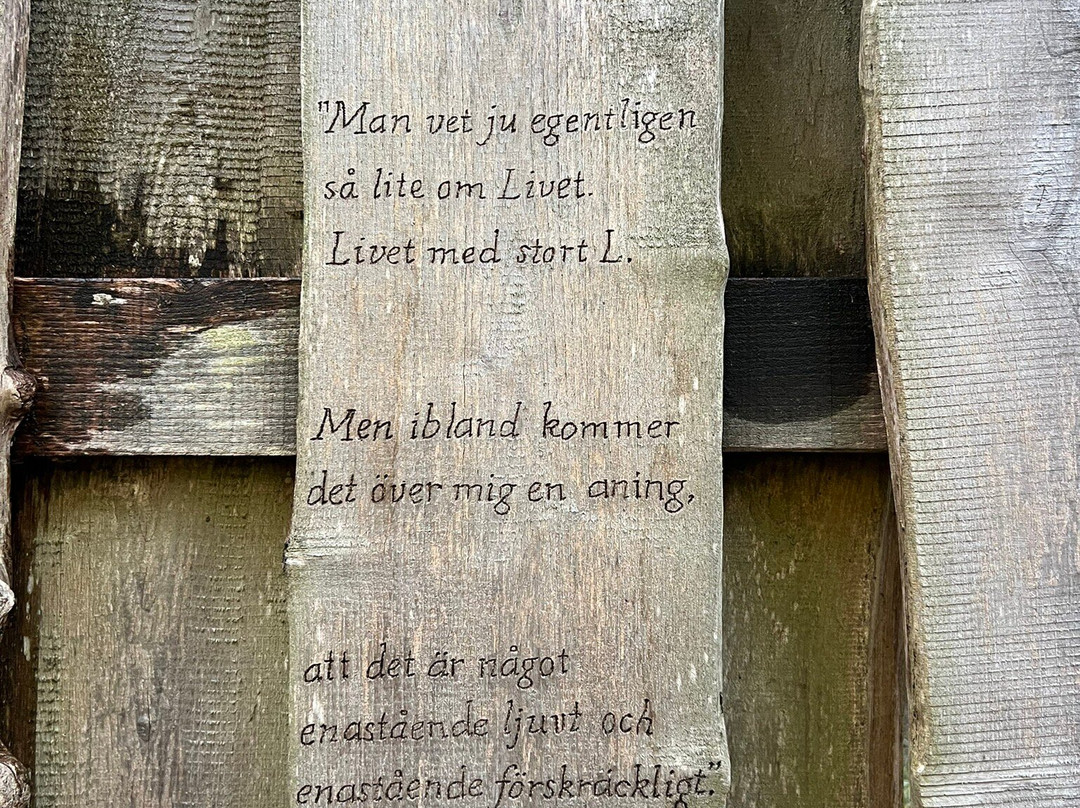 "Man vet ju egentligen
så lite om Livet.
Livet med stort L.
Men ibland kommer
det över mig en aning,
att det är något
enastående ljuvt och
enastående förskräckligt."